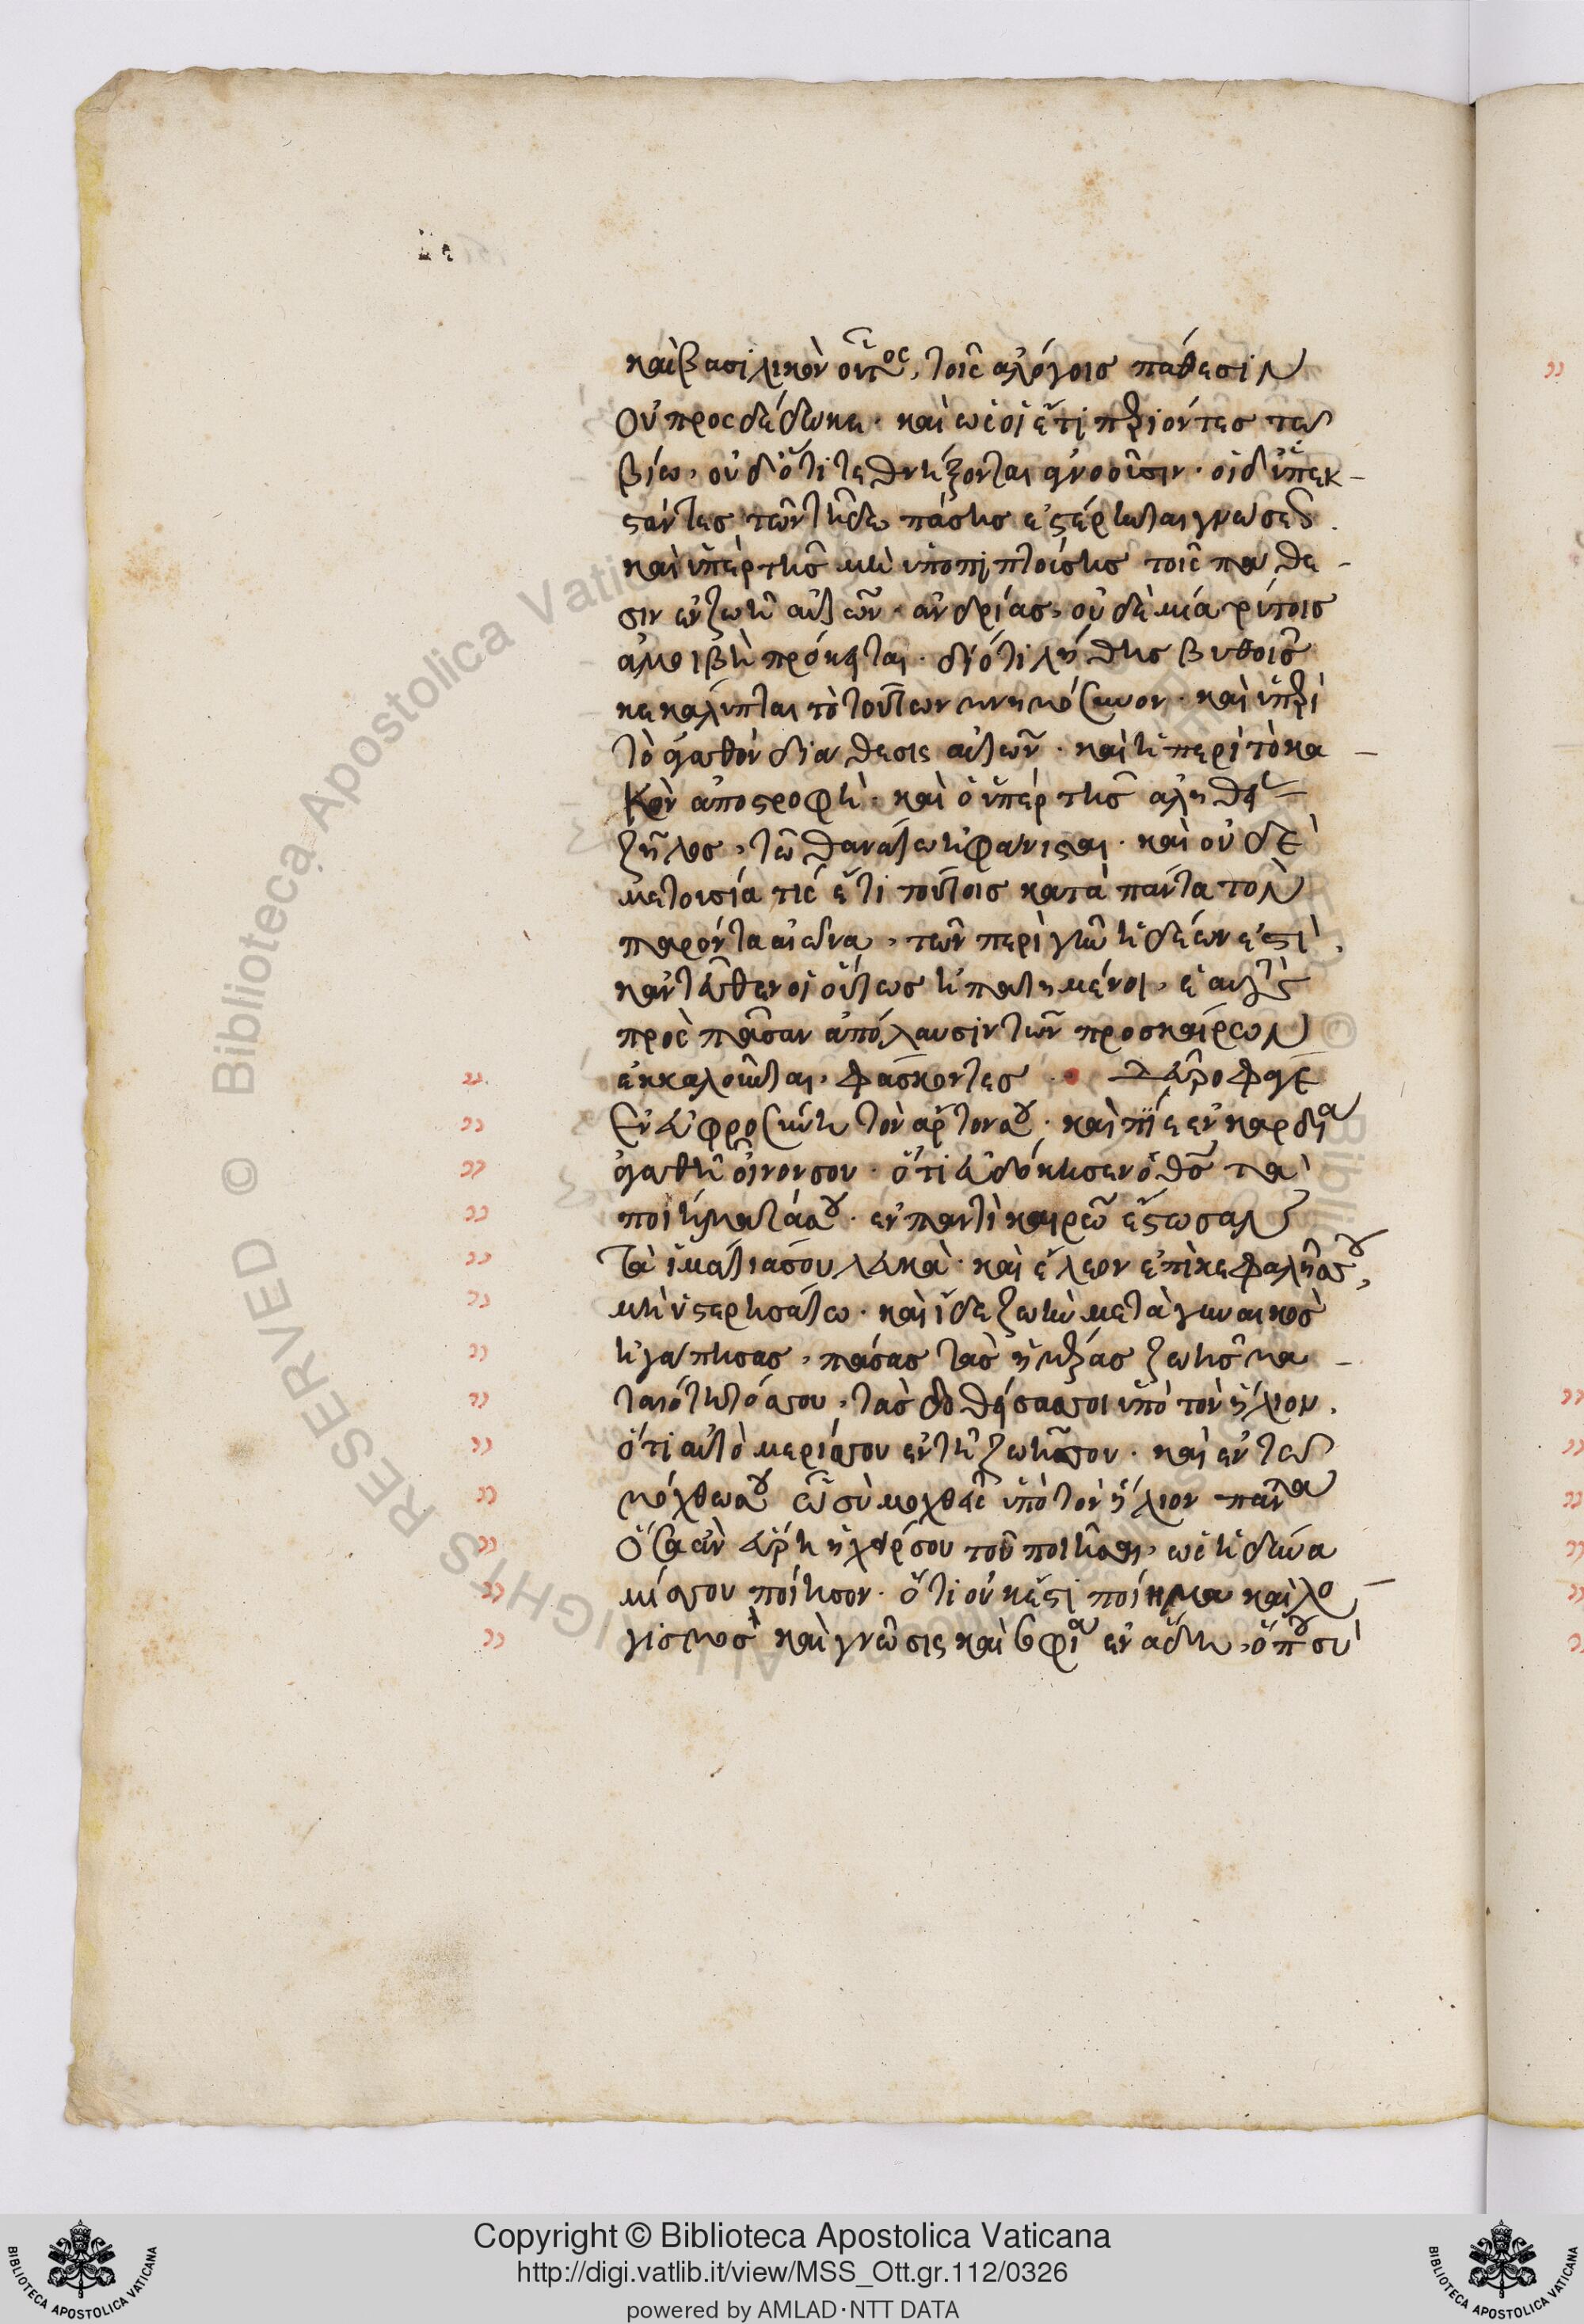 καὶ βασιλικὸν οὗτος, τοῖς αλόγοις πάθεσιν
Οὐ προσδέδωκε · καὶ ὡς οἱ ἔτι περιόντες τῶ
βίω, οὐδ' ὅτι τεθνήξονται ἀγνοοῦσιν · οἱ δ' ὑπεκ-
στάντες τῶν τῆδε πάσης ἐστέρηνται γνώσεως.
καὶ ὑπὲρ τῆς μὴ ὑποπιπτούσης τοῖς πάθε-
σιν ἐν ζωῆ αὐτῶν ἀνδρίας, οὐδὲ μία
ἀμοιβὴ πρόκειται · διότι λήθης βυθοῖς
κεκάλυπται τὸ τούτων μνημόσυνον · καὶ ἡ περὶ
τὸ ἀγαθὸν διάθεσις αὐτῶν · καὶ ἡ περὶ τὸ κα-
κὸν ἀποστροφὴ · καὶ ὁ ὑπὲρ τῆς ἀληθείας
ζῆλος, τῶ θανάτω ἠφάνισται · καὶ οὐδὲ
μετουσία τίς ἔτι τούτοις κατὰ πάντα τὸν
παρόντα αἰῶνα, τῶν περὶ γῆν ἡδέων ἐστὶ.
κἀντεῦθεν οἱ οὕτως ἠπατημένοι, ἑαυτοὺς
πρὸς πᾶσαν ἀπόλαυσιν τῶν προσκαίρων
ἐκκαλοῦνται, φάσκοντες · Δεῦρο φάγε
Ἐν εὐφροσύνη τὸν ἄρτον σου · καὶ πίε ἐν καρδία
ἀγαθῆ οἶνον σου · ὅτι εὐδόκησεν ὁ θς τὰ
ποιήματά σου · ἐν παντὶ καιρῶ ἔστωσαν
Τὰ ἱμάτιά σου λευκὰ · καὶ ἔλεον ἐπὶ κεφαλῆς σου,
μὴ ὑστερησάτω · καὶ ἴδε ζωὴν μετὰ γυναικὸς
ἧς ἠγάπησας, πάσας τὰς ἡμέρας ζωῆς μα-
ταιότητός σου, τὰς δοθείσας σοι ὑπὸ τὸν ἥλιον.
ὅτι αὐτὸ μερίς σου ἐν τῆ ζωῆ σου · καὶ ἐν τῶ
μόχθω σου ὧ σὺ μοχθεῖς ὑπὸ τὸν ἥλιον πάντα
Ὅσα ἂν εὕρη ἡ χείρ σου τοῦ ποιῆσαι, ὡς ἡ δύνα
μίς σου ποίησον · ὅτι οὐκ ἔστι ποίημα καὶ λο-
γισμὸς καὶ γνῶσις καὶ σοφία ἐν ἅδη, ὅπου σὺ
Copyright © Biblioteca Apostolica Vaticana
http://digi.vatlib.it/view/MSS_Ott.gr.112/0326
powered by AMLAD·NTT DATA